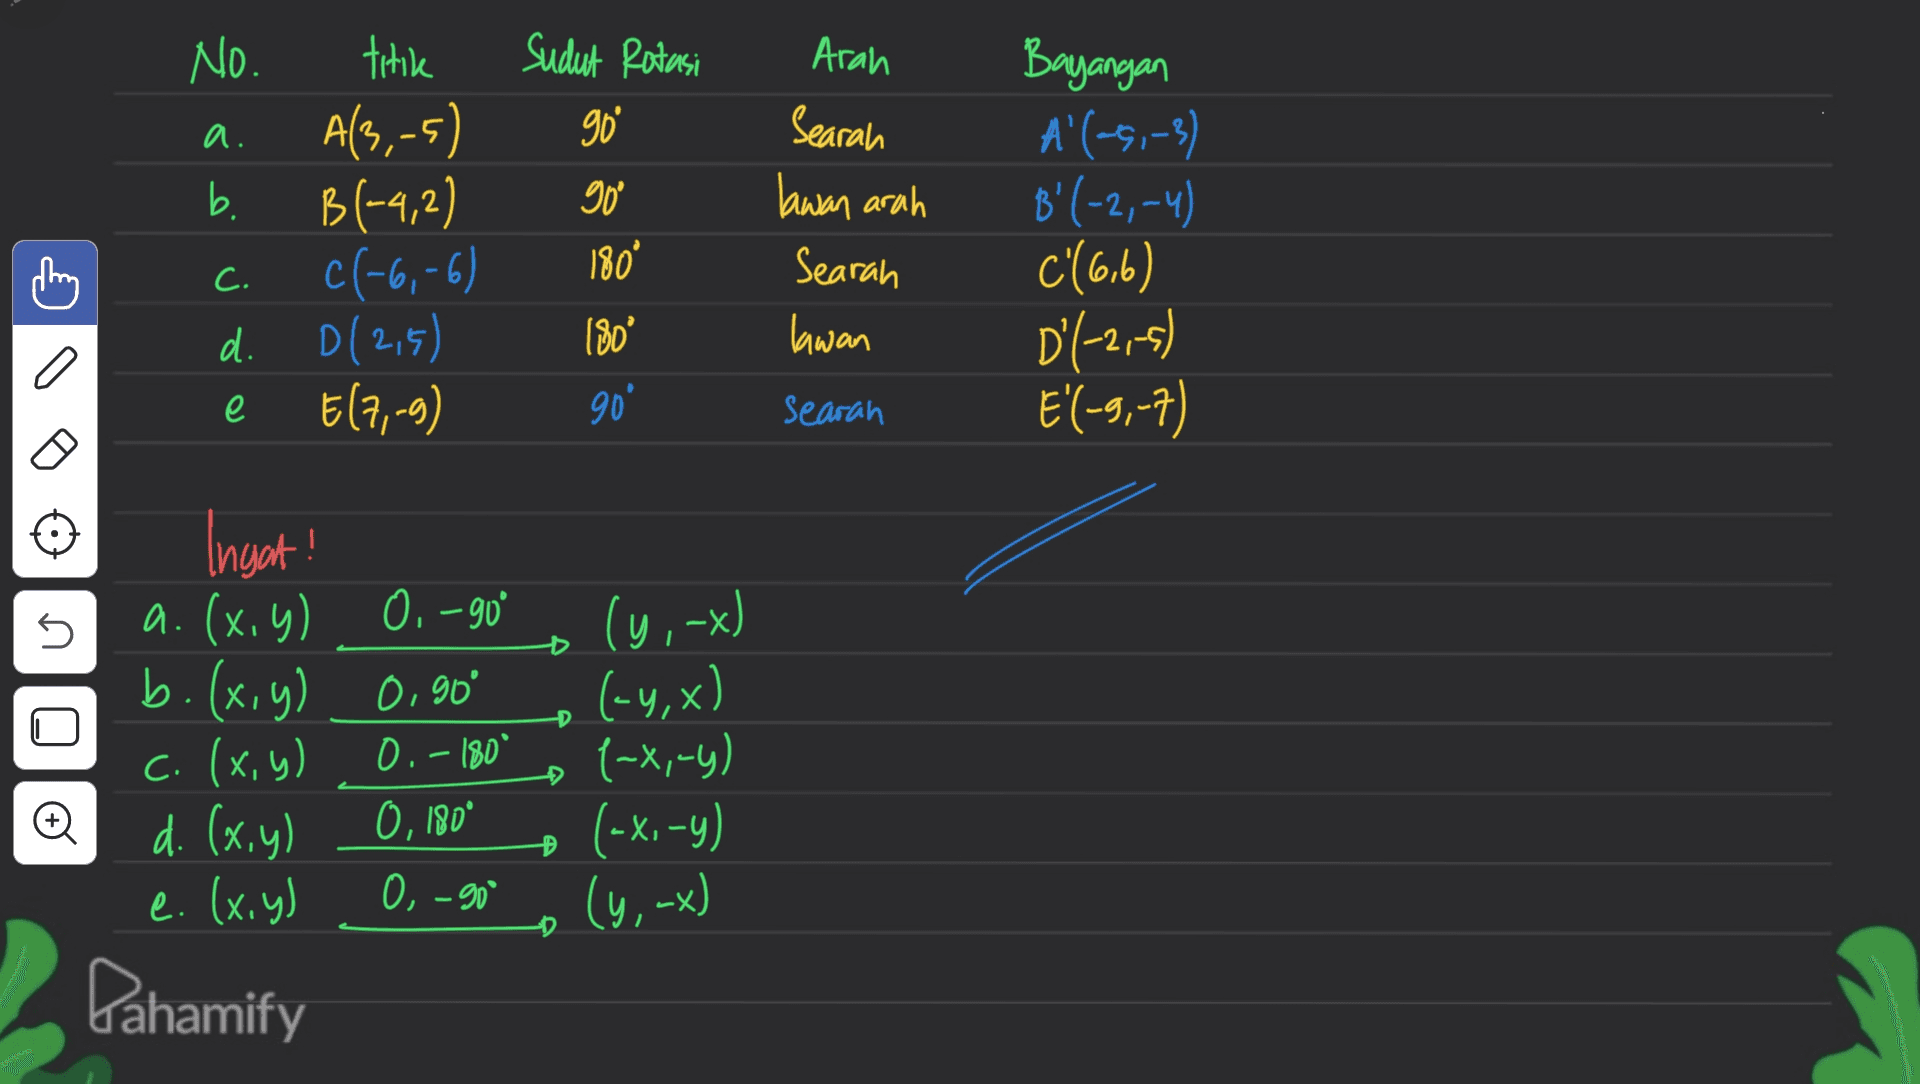 No. titik Sudut Rotasi Arah Bayangan
a. A(3,-5) 90° Searah A'(-5,-3)
b. B(-4,2) 90° lawan arah B'(-2,-4)
c. C(-6,-6) 180° Searah C'(6,6)
d. D(2,5) 180° lawan D'(-2,-5)
e E(7,-9) 90° searah E'(-9,-7)
Ingat!
a. (x,y) O,-90° (y,-x)
b. (x,y) O,90° (-y,x)
c. (x,y) O,-180° (-x,-y)
d. (x,y) O,180° (-x,-y)
e. (x,y) O,-90° (y,-x)
Pahamify